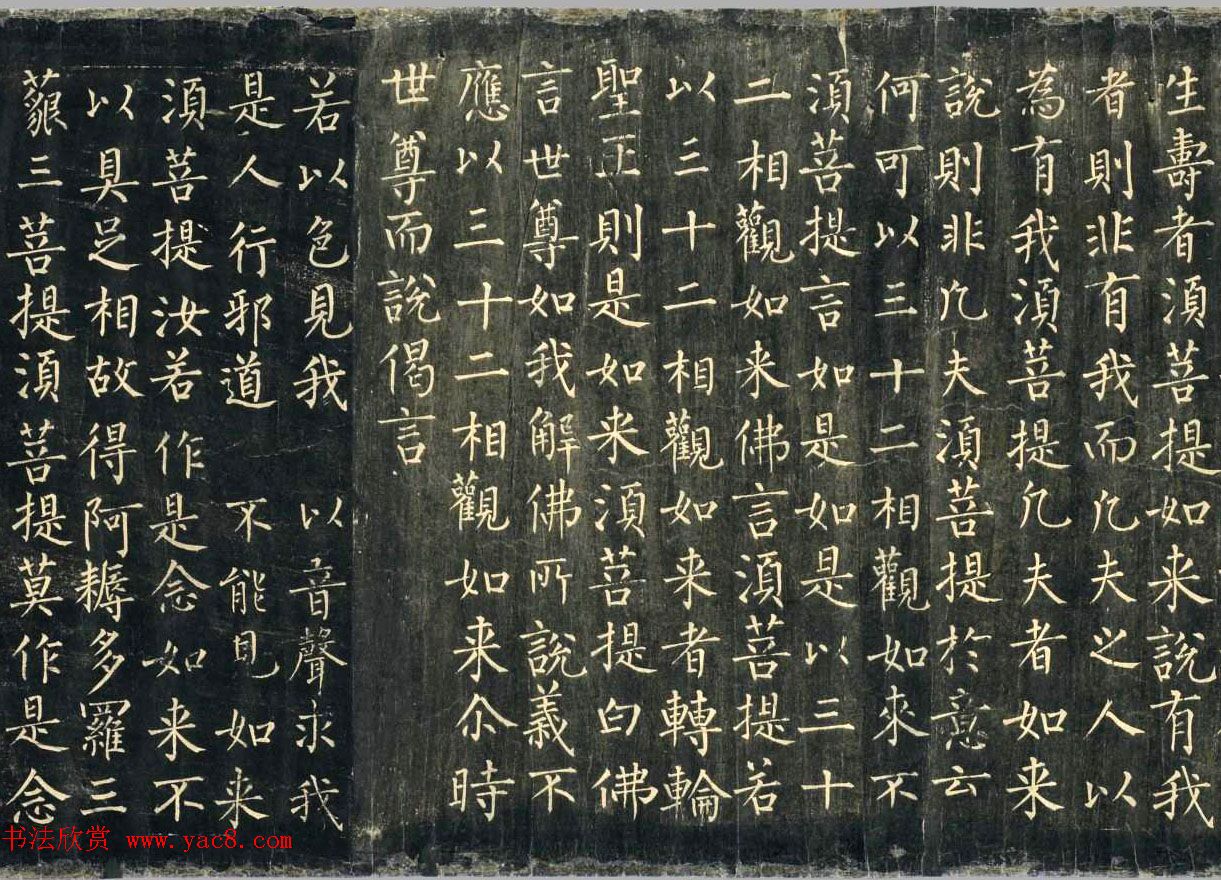 生壽者須菩提如来說有我
者則非有我而凡夫之人以
為有我須菩提凡夫者如来
說則非凡夫須菩提於意云
何可以三十二相觀如來不
須菩提言如是如是以三十
二相觀如来佛言須菩提若
以三十二相觀如来者轉輪
聖王則是如来須菩提白佛
言世尊如我解佛所說義不
應以三十二相觀如来尒時
世尊而說偈言
若以色見我 以音聲求我
是人行邪道 不能見如来
須菩提汝若作是念如来不
以具足相故得阿耨多羅三
藐三菩提須菩提莫作是念
书法欣赏 www.yac8.com